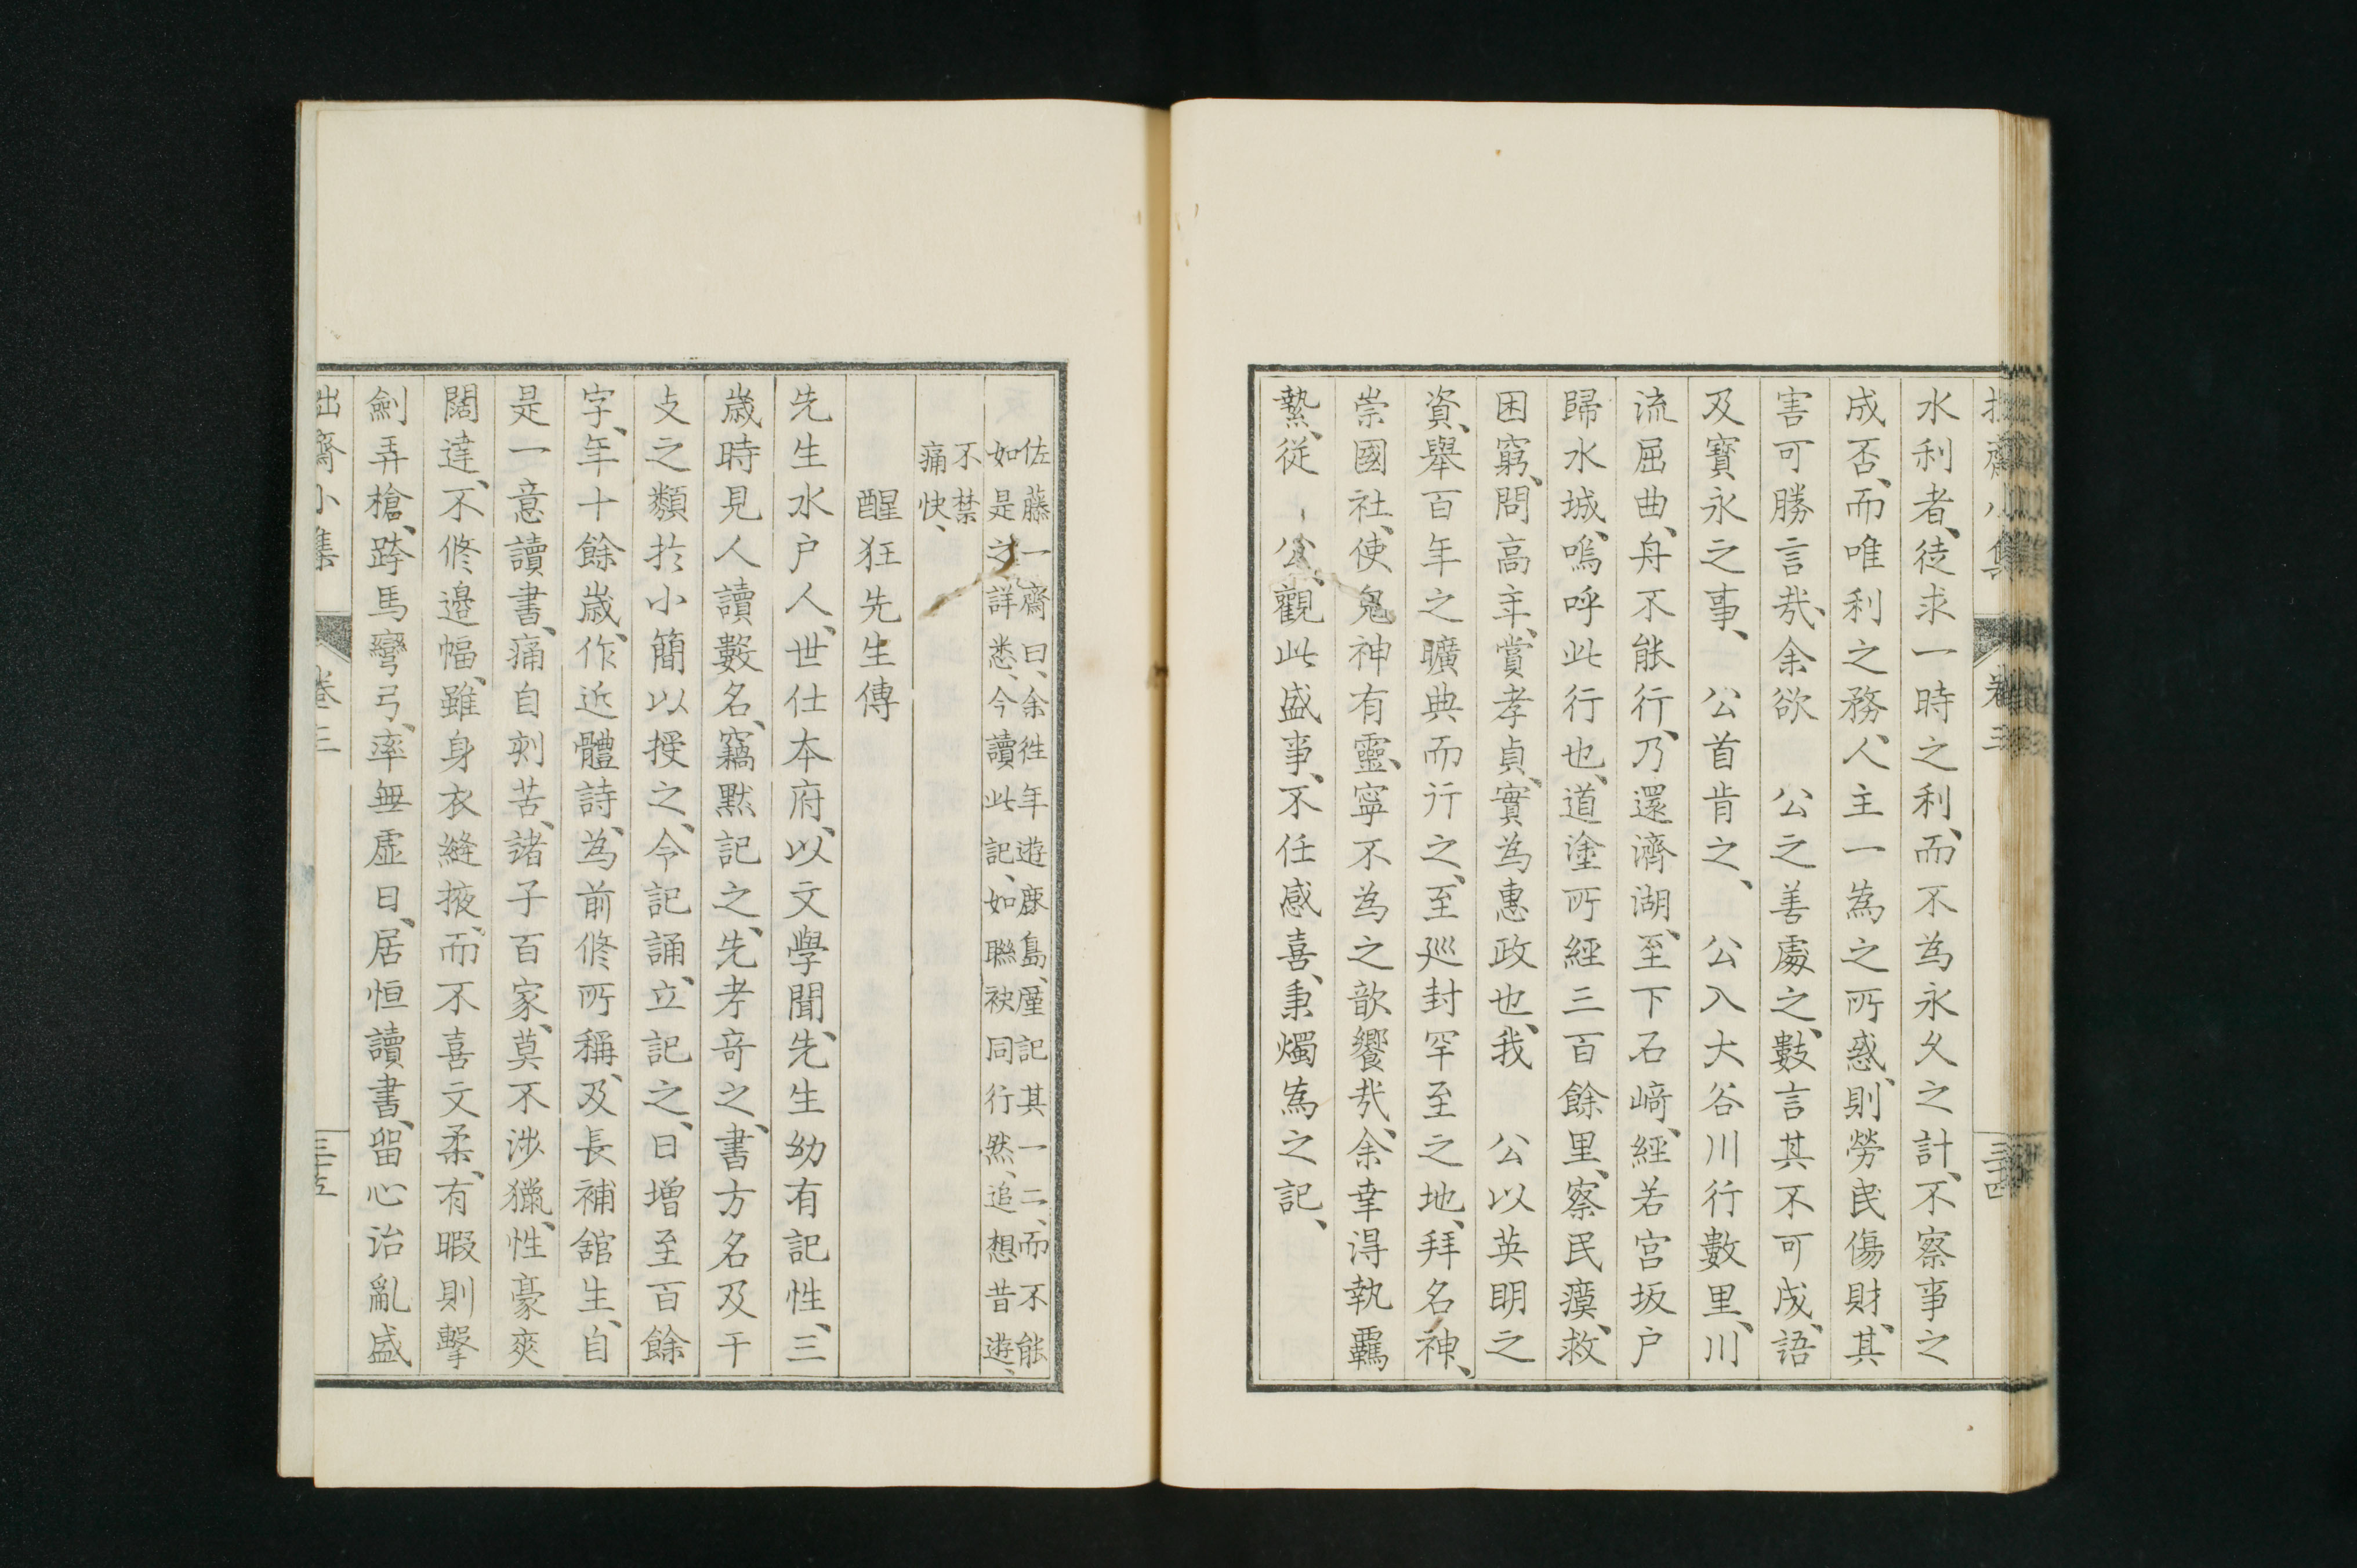 水利者、徒求一時之利、而不為永久之計、不察事之
成否、而唯利之務、人主一為之所惑、則勞民傷財、其
害可勝言哉、余欲　公之善處之、數言其不可成、語
及寶永之事、　公首肯之、　公入大谷川行數里、川
流屈曲、舟不能行、乃還濟湖、至下石﨑、經若宮坂戶
歸水城、嗚呼此行也、道塗所經三百餘里、察民瘼、救
困窮、問高年、賞孝貞、實為惠政也、我　公以英明之
資、舉百年之曠典而行之、至巡封罕至之地、拜名神、
崇國社、使鬼神有靈、寧不為之歆饗哉、余幸得執羈
縶、從　公、觀此盛事、不任感喜、秉燭為之記、
佐藤一齋曰、余徃年遊鹿島、厪記其一二、而不能
如是之詳悉、今讀此記、如聯袂同行然、追想昔遊、
不禁
痛快、
醒狂先生傳
先生水戶人、世仕本府、以文學聞、先生幼有記性、三
歲時見人讀數名、竊默記之、先考奇之、書方名及干
支之類於小簡以授之、令記誦、立記之、日增至百餘
字、年十餘歲、作近體詩、為前修所稱、及長補舘生、自
是一意讀書、痛自刻苦、諸子百家、莫不涉獵、性豪爽
闊達、不修邊幅、雖身衣縫掖、而不喜文柔、有暇則擊
劍弄槍、跨馬彎弓、率無虛日、居恒讀書、留心治亂盛
拙齋小集　卷三　三十五